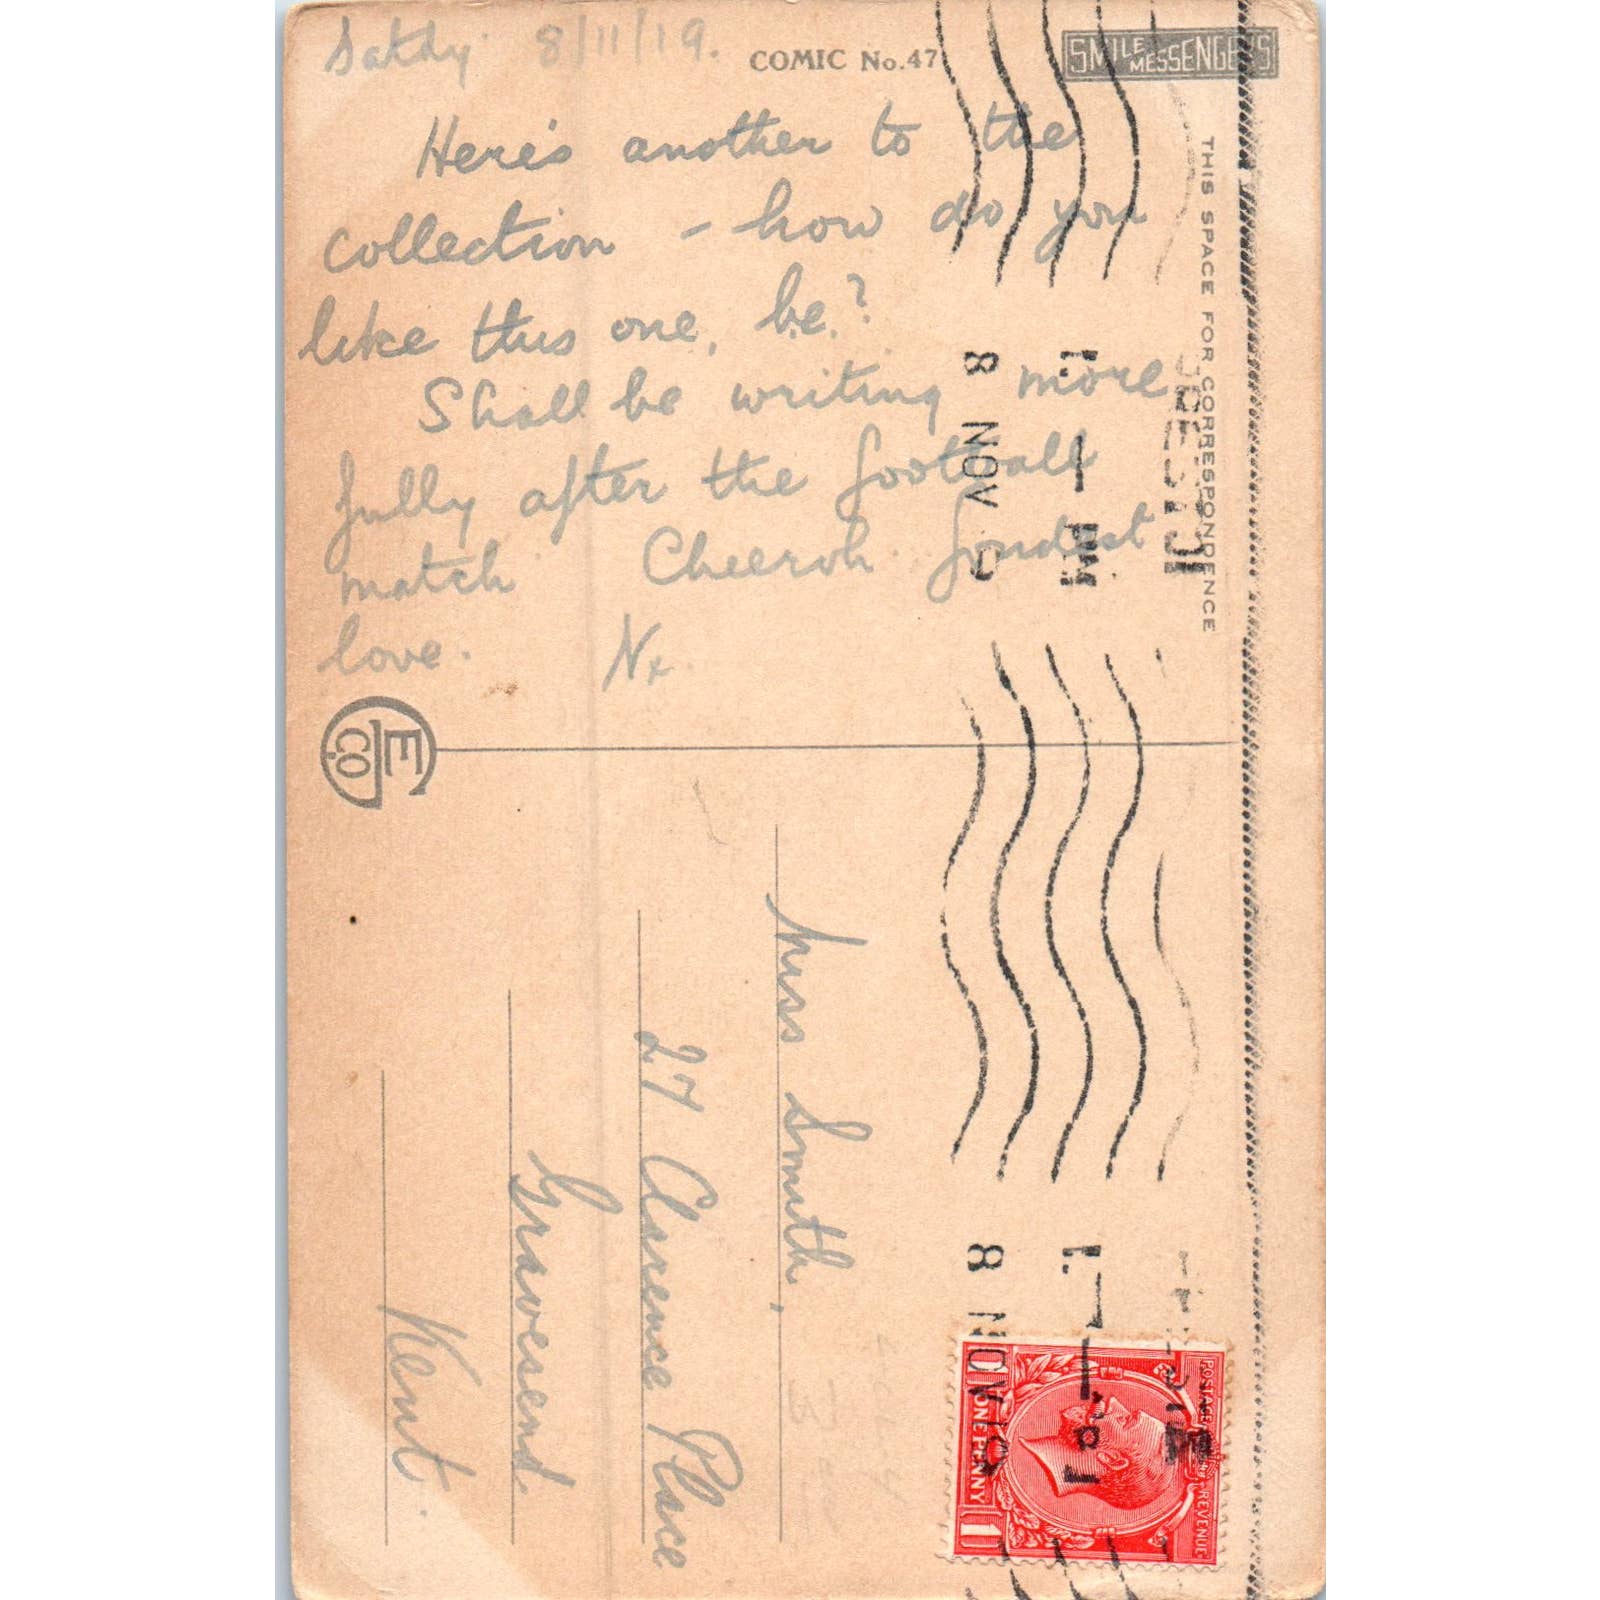 Satdy 8/11/19.
COMIC No.47
SMILE MESSENGERS
Here's another to the
collection - how do you
like this one, he?
Shall be writing more
fully after the football
match Cheeroh. fondest
love. Nx
THIS SPACE FOR CORRESPONDENCE
E Co
8 NOV
1. — PM
Miss Smith,
27 Clarence Place
Gravesend
Kent.
8 NOV 19
POSTAGE REVENUE
1 ONE PENNY 1